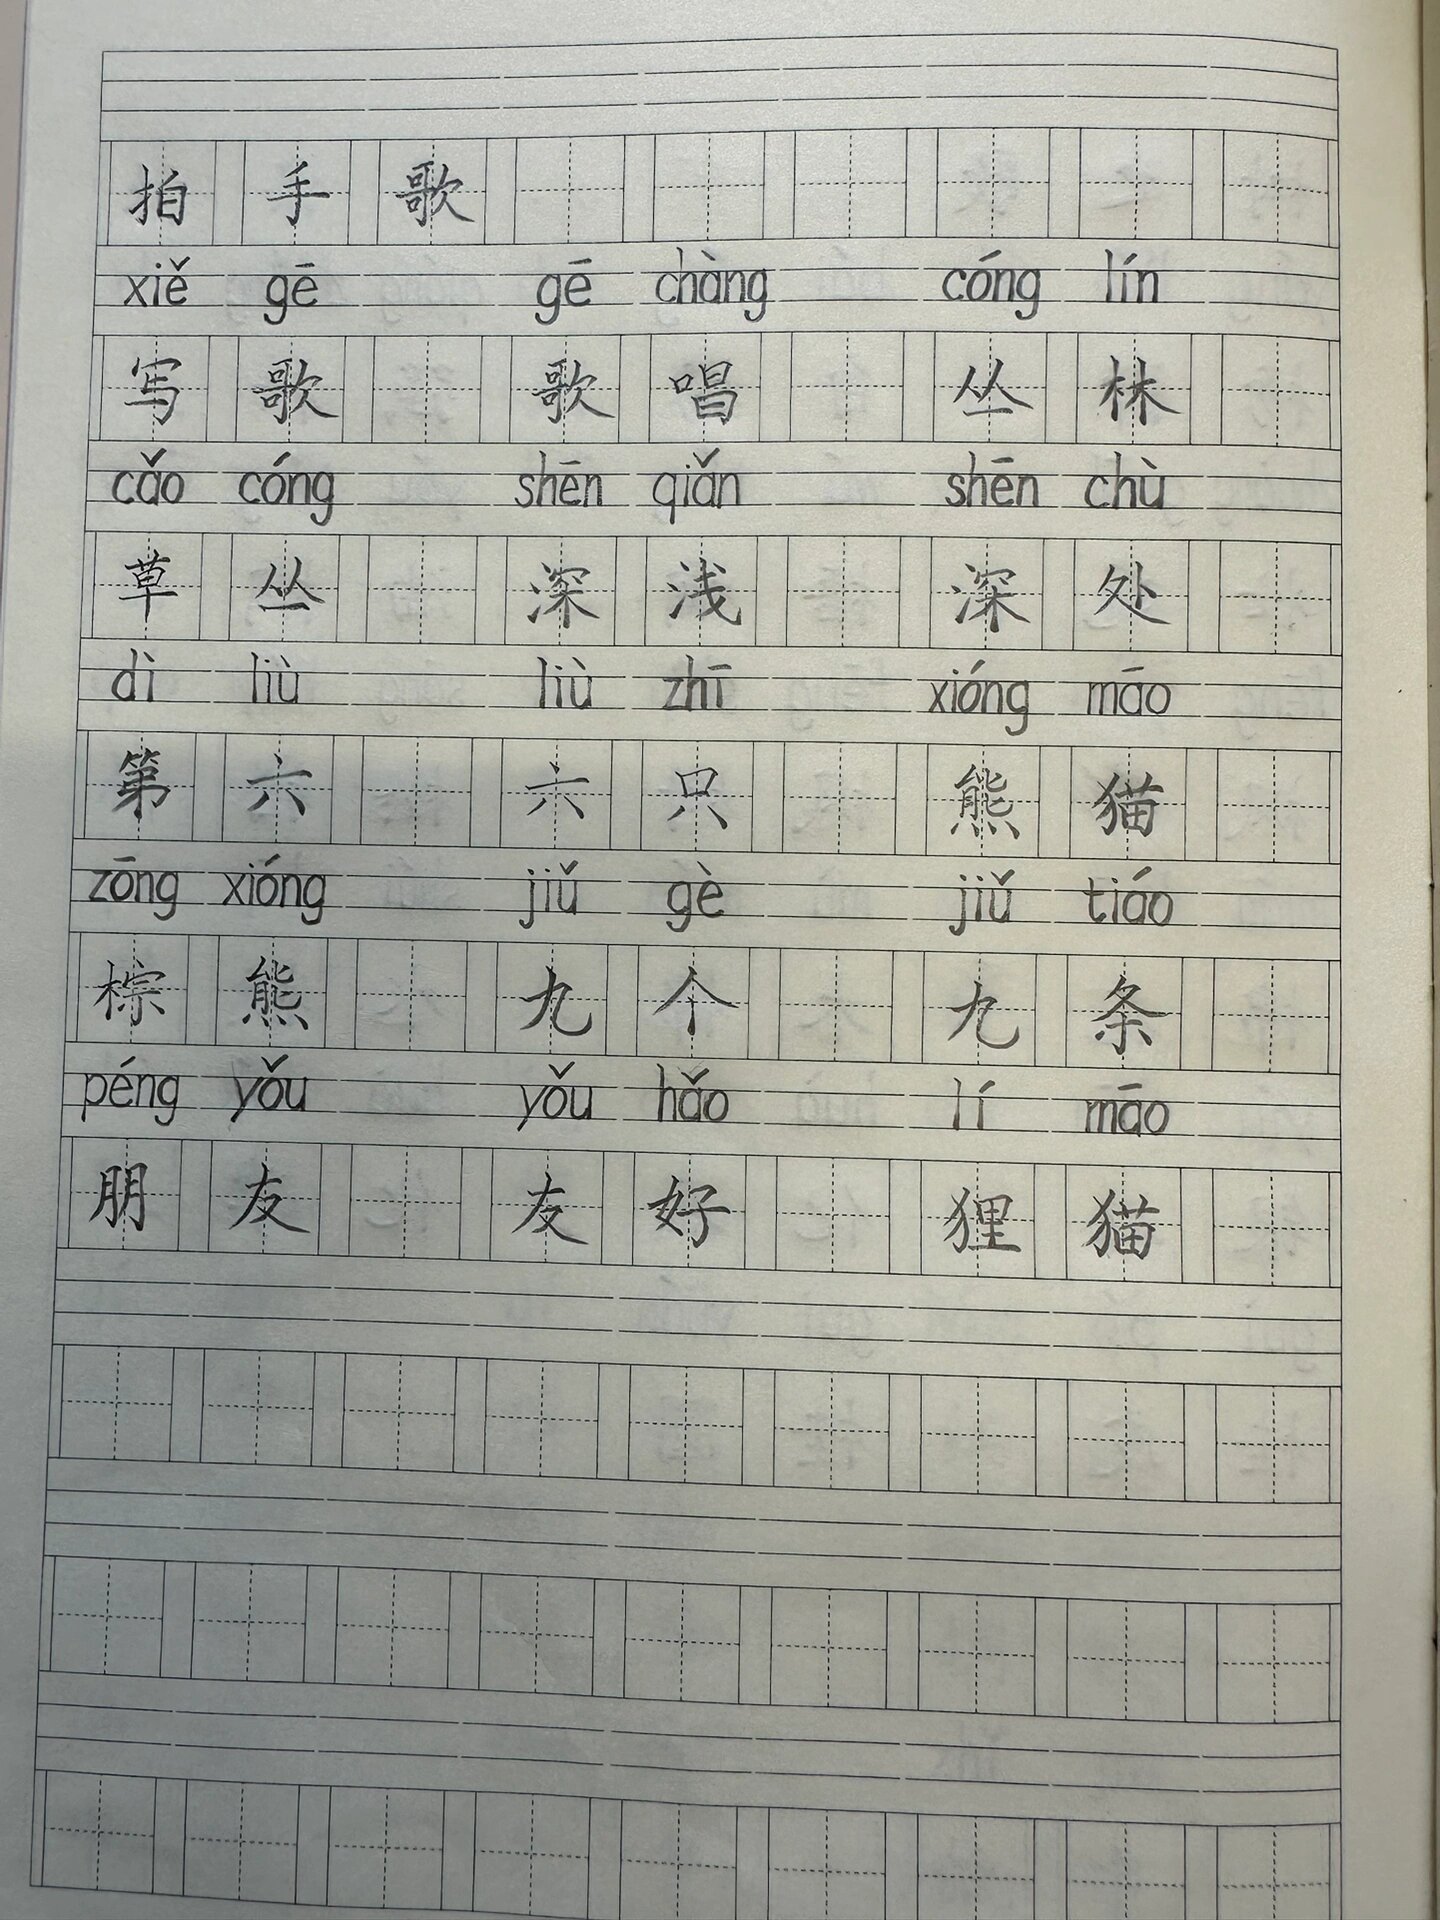 拍手歌
xiě gē gē chàng cóng lín
写歌 歌唱 丛林
cǎo cóng shēn qiǎn shēn chù
草丛 深浅 深处
dì liù liù zhī xióng māo
第六 六只 熊猫
zōng xióng jiǔ gè jiǔ tiáo
棕熊 九个 九条
péng yǒu yǒu hǎo lí māo
朋友 友好 狸猫